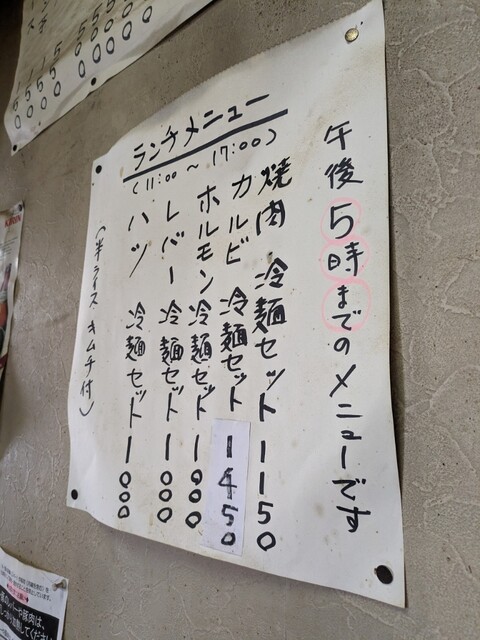 午後5時までのメニューです
ランチメニュー
(11:00~17:00)
焼肉 冷麺セット 1150
カルビ 冷麺セット 1450
ホルモン 冷麺セット 1000
レバー 冷麺セット 1000
ハツ 冷麺セット 1000
(半ライス キムチ付)